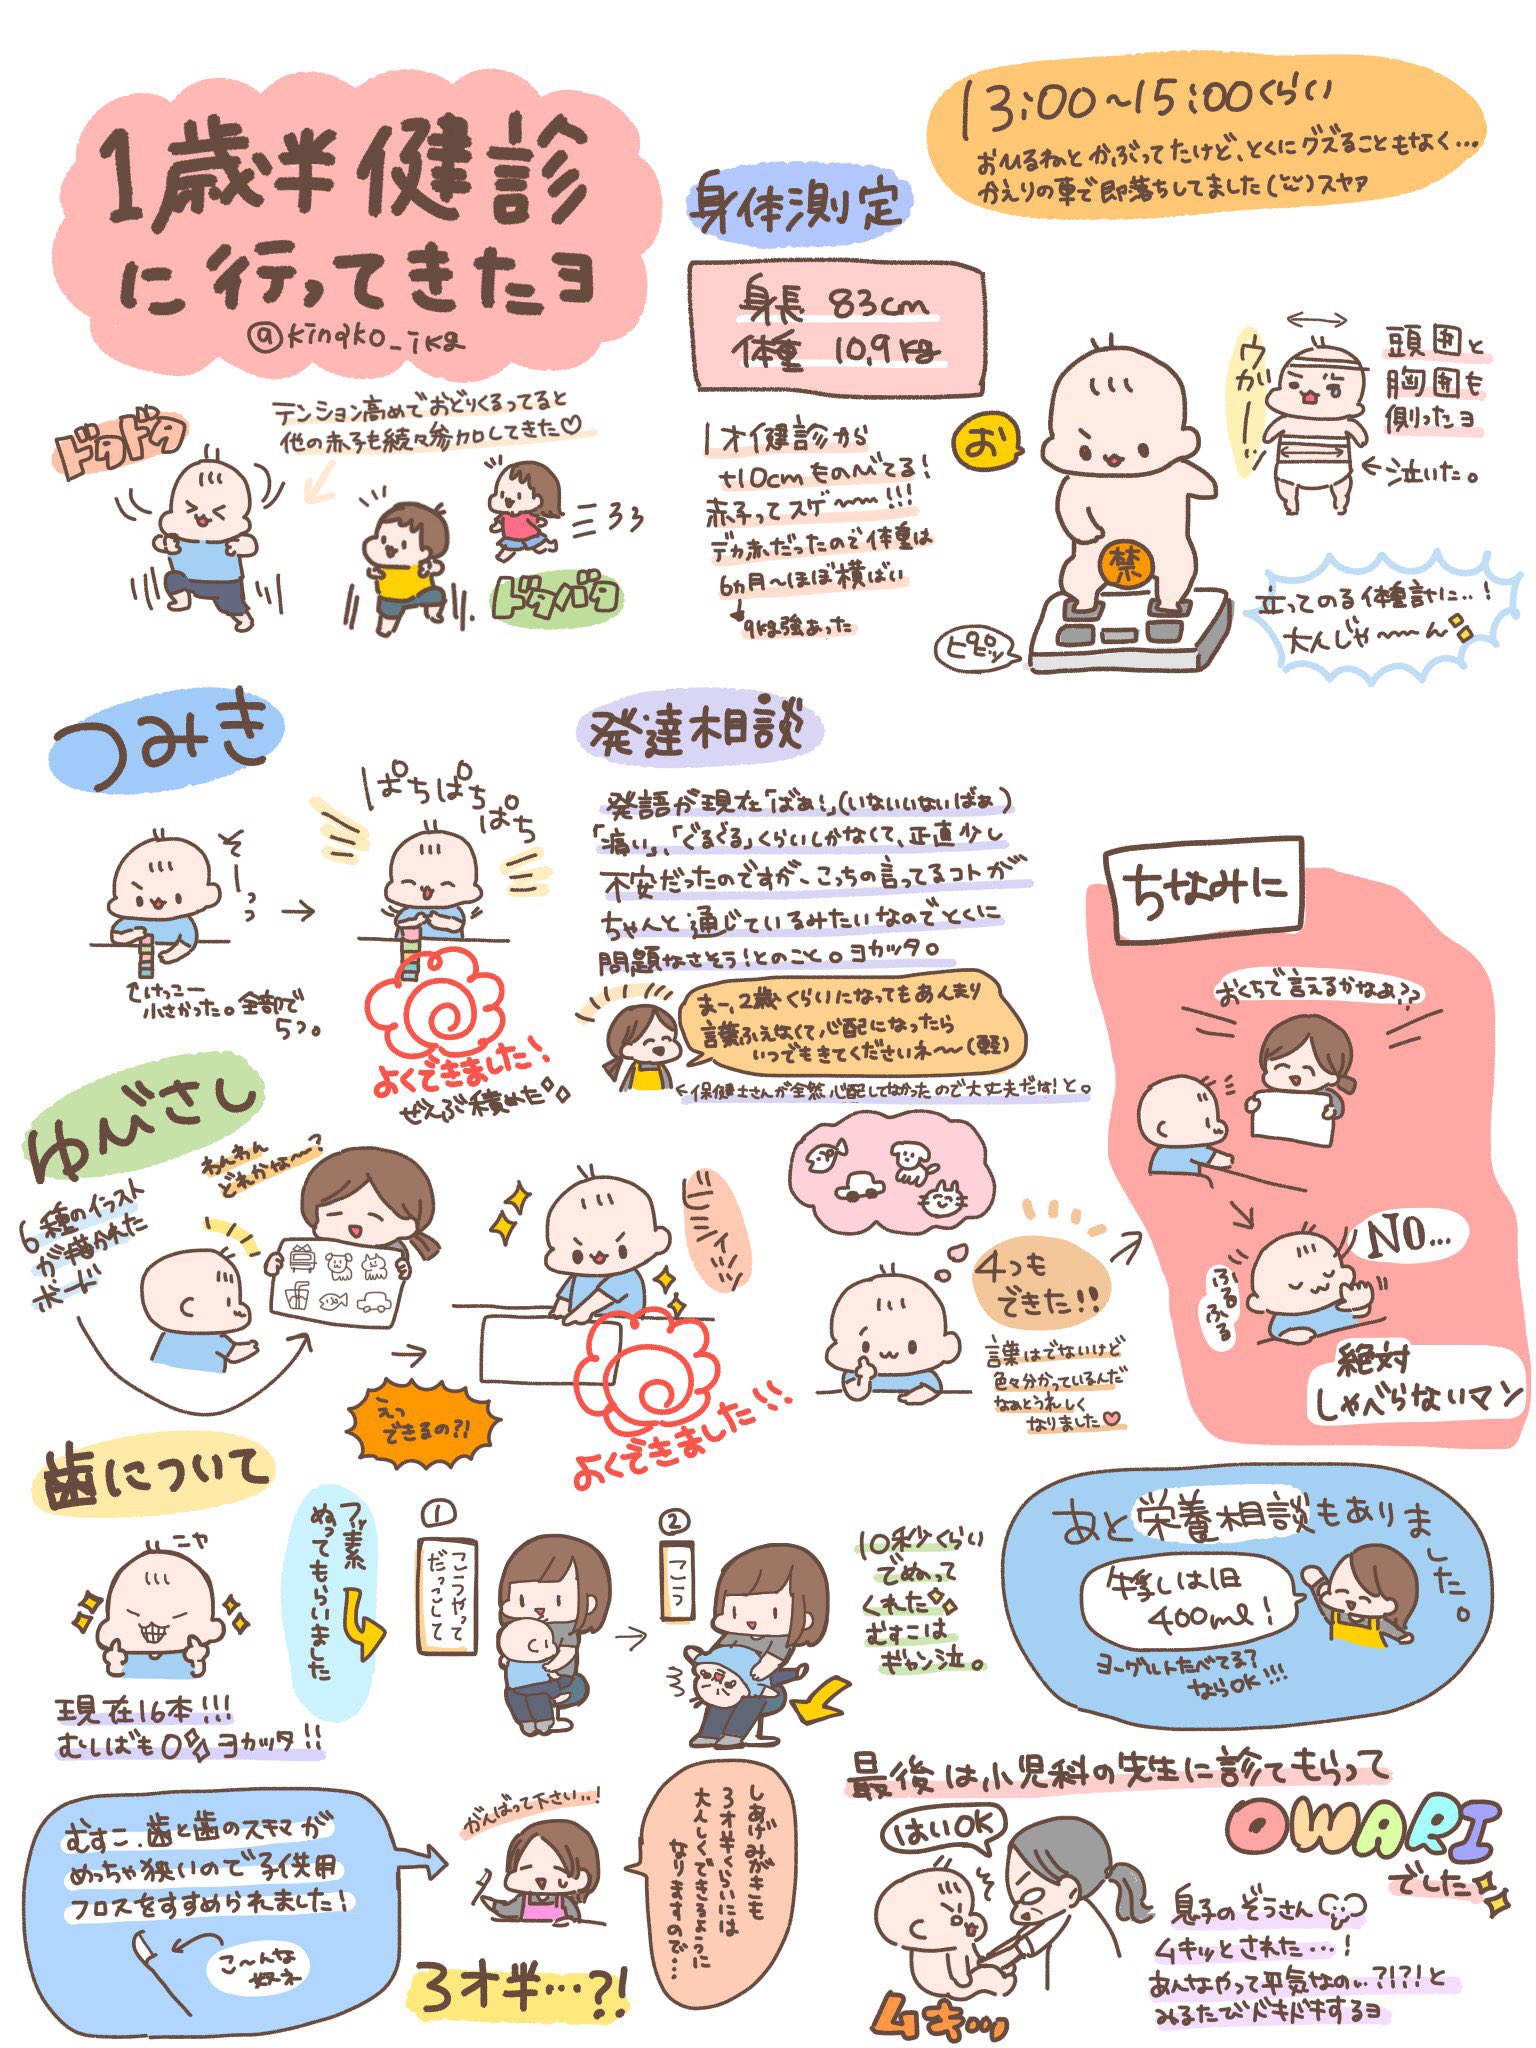 1歳半健診
に行ってきたヨ
@kinako_ika
13:00〜15:00くらい
おひるねとかぶってたけど、とくにグズることもなく…
かえりの車で即落ちしてました(¨)スヤァ
ドタドタ
テンション高めでおどりくるってると
他の赤子も続々参加してきた♡
ドタバタ
身体測定
身長 83cm
体重 10.9kg
1才健診から
+10cmものびてる!
赤子ってスゲ〜〜!!!
デカ赤だったので体重は
6ヵ月〜ほぼ横ばい
9kg強あった
お
禁
ピピッ
ウガーッ
頭囲と
胸囲も
測ったヨ
←泣いた。
立ってのる体重計に…!
大人じゃ〜〜ん
つみき
そーっっ
→
ぱちぱちぱち
けっこー
小さかった。全部で
5つ。
よくできました!
ぜんぶ積めた
発達相談
発語が現在「ばぁ!」(いないいないばぁ)
「痛い」、「ぐるぐる」くらいしかなくて、正直少し
不安だったのですが、こっちの言ってるコトが
ちゃんと通じているみたいなのでとくに
問題なさそう!とのこと。ヨカッタ。
まー、2歳くらいになってもあんまり
言葉ふえなくて心配になったら
いつでもきてくださいネ〜(軽)
←保健士さんが全然心配してなかったので大丈夫だな!と。
ゆびさし
6種のイラスト
が描かれた
ボード
わんわん
どれかな〜?
→
えっ
できるの?!
ビシィッッ
よくできました!!
4つも
できた!!
言葉はでないけど
色々分かっているんだ
なぁとうれしく
なりました♥
ちなみに
おくちで言えるかなぁ??
NO...
ふるふる
絶対
しゃべらないマン
歯について
ニヤ
現在16本!!!
むしばも0 ヨカッタ!!
フッ素
ぬってもらいました
①
こうやって
だっこして
→
②
こう
10秒くらい
でぬって
くれた
むすこは
ギャン泣。
あと栄養相談もありました。
牛乳は1日
400ml!
ヨーグルトたべてる?
ならOK!!!
むすこ、歯と歯のスキマが
めっちゃ狭いので子供用
フロスをすすめられました!
こ〜んな
奴ネ
がんばって下さい…!
しあげみがきも
3才半くらいには
大人しくできるように
なりますので…
3才半…?!
最後は小児科の先生に診てもらって
OWARI
でした
はいOK
ムキ…ッ
息子のぞうさん
ムキッとされた…!
あんなやって平気なの…?!?!と
みるたびドキドキするヨ